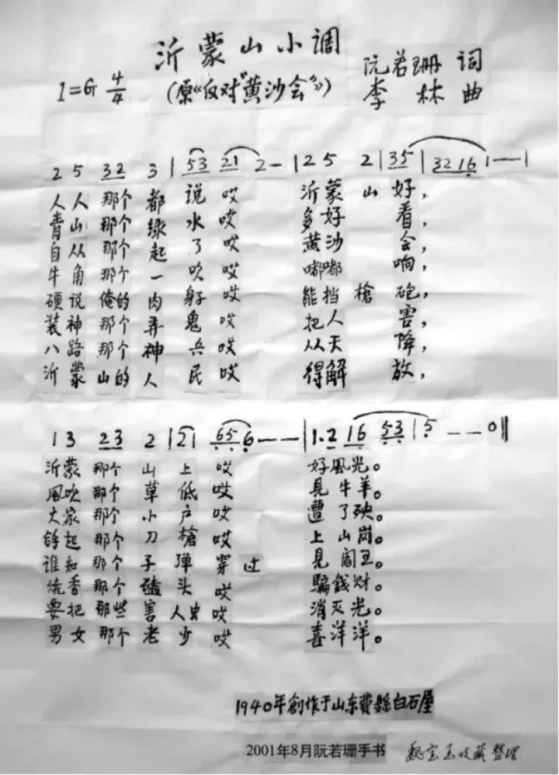 沂蒙山小调
(原《反对"黄沙会"》)
1=G 4/4
阮若珊 词
李林 曲
2 5 32 3 | 53 21 2 - | 2 5 2 | 35 | 32 16 | 1 — — |
人人那个都说哎 沂蒙山好,
青山那个绿水哎 多好看,
自从那个起了哎 黄沙会,
牛角那个一吹哎 嘟嘟响,
硬说俺的肉身哎 能挡槍砲,
装神那个弄鬼哎 把人害,
八路那个神兵哎 从天降,
沂蒙山的人民哎 得解放,
1 3 23 2 | 21 65 6 — — | 1.2 16 53 | 5 — — 0 ‖
沂蒙那个山上哎 好風光。
風吹那个草低哎 見牛羊。
大家那个小户哎 遭了殃。
拿起那个刀槍哎 上山岗。
谁知那个子弹穿过 見阎王。
烧香那个磕头哎 騙錢财。
要把那些害人虫哎 消灭光。
男女那个老少哎 喜洋洋。
1940年創作于山东費縣白石屋
2001年8月阮若珊手书
收藏整理